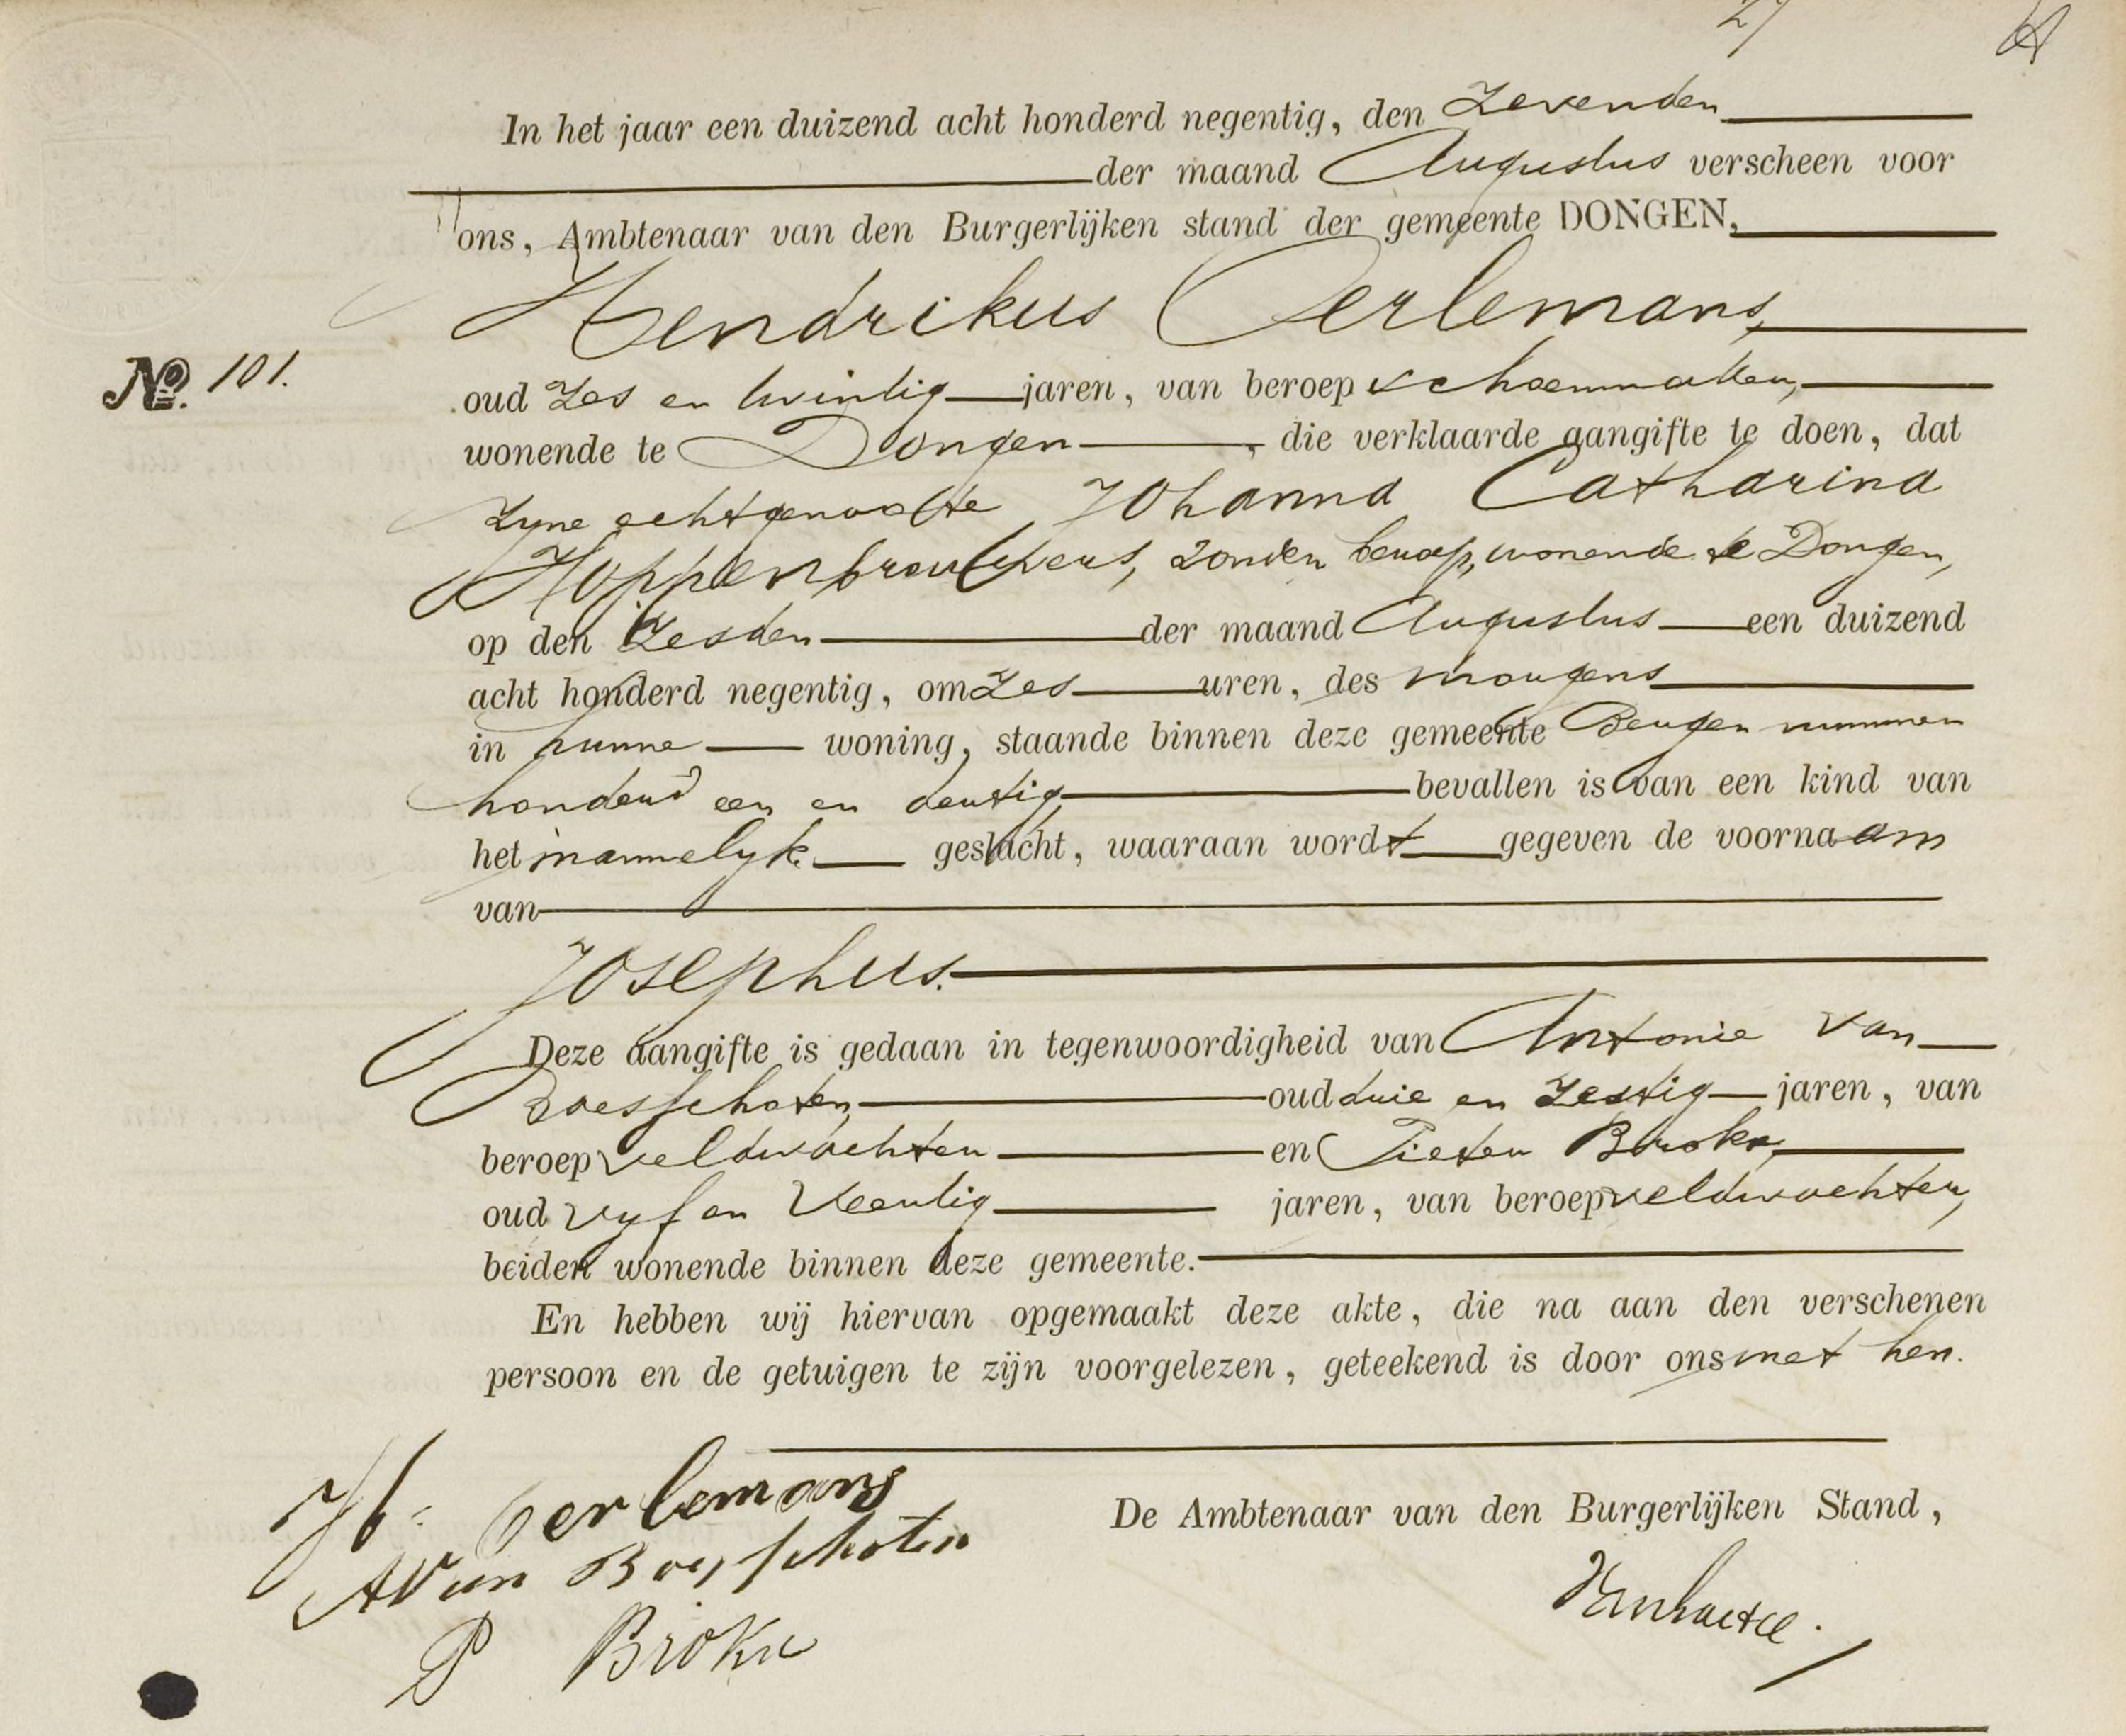 27
In het jaar een duizend acht honderd negentig, den Zevenden
der maand Augustus verscheen voor
ons, Ambtenaar van den Burgerlijken stand der gemeente DONGEN,
Hendrikus Oerlemans,
No. 101.
oud Zes en twintig jaren, van beroep schoenmaker,
wonende te Dongen, die verklaarde aangifte te doen, dat
zyne echtgenoote Johanna Catharina
Hoppenbrouwers, zonder beroep, wonende te Dongen,
op den Zesden der maand Augustus een duizend
acht honderd negentig, om Zes uren, des morgens
in hunne woning, staande binnen deze gemeente nummer
honderd een en dertig bevallen is van een kind van
het mannelyk geslacht, waaraan wordt gegeven de voornaam
van
Josephus.
Deze aangifte is gedaan in tegenwoordigheid van Antonie van
Boesschoten, oud drie en Zestig jaren, van
beroep veldwachter en Pieter Broks,
oud vyf en Veertig jaren, van beroep veldwachter,
beiden wonende binnen deze gemeente.
En hebben wij hiervan opgemaakt deze akte, die na aan den verschenen
persoon en de getuigen te zijn voorgelezen, geteekend is door ons met hen.
H. Oerlemans
De Ambtenaar van den Burgerlijken Stand,
A Van Boesschoten
P